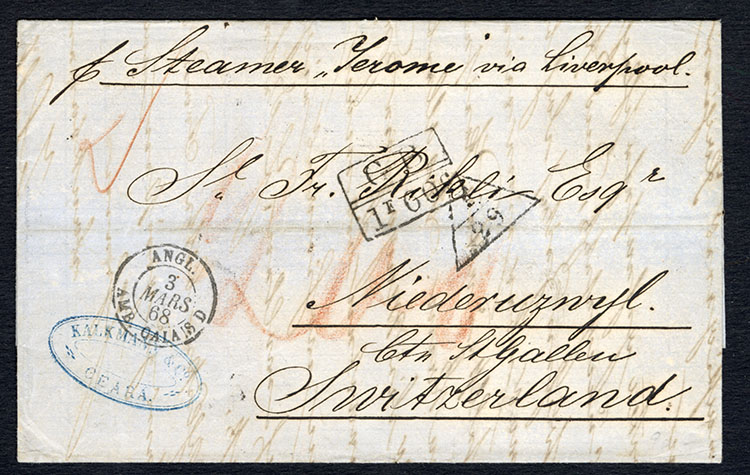 p Steamer „Jerome" via Liverpool.
St. Fr. Esqr
GB
1F60c
Niederuzwyl.
Ctn St Gallen
Switzerland.
ANGL.
3
MARS
68
AMB. CALAIS D
KALKMANN & Co
CEARA.